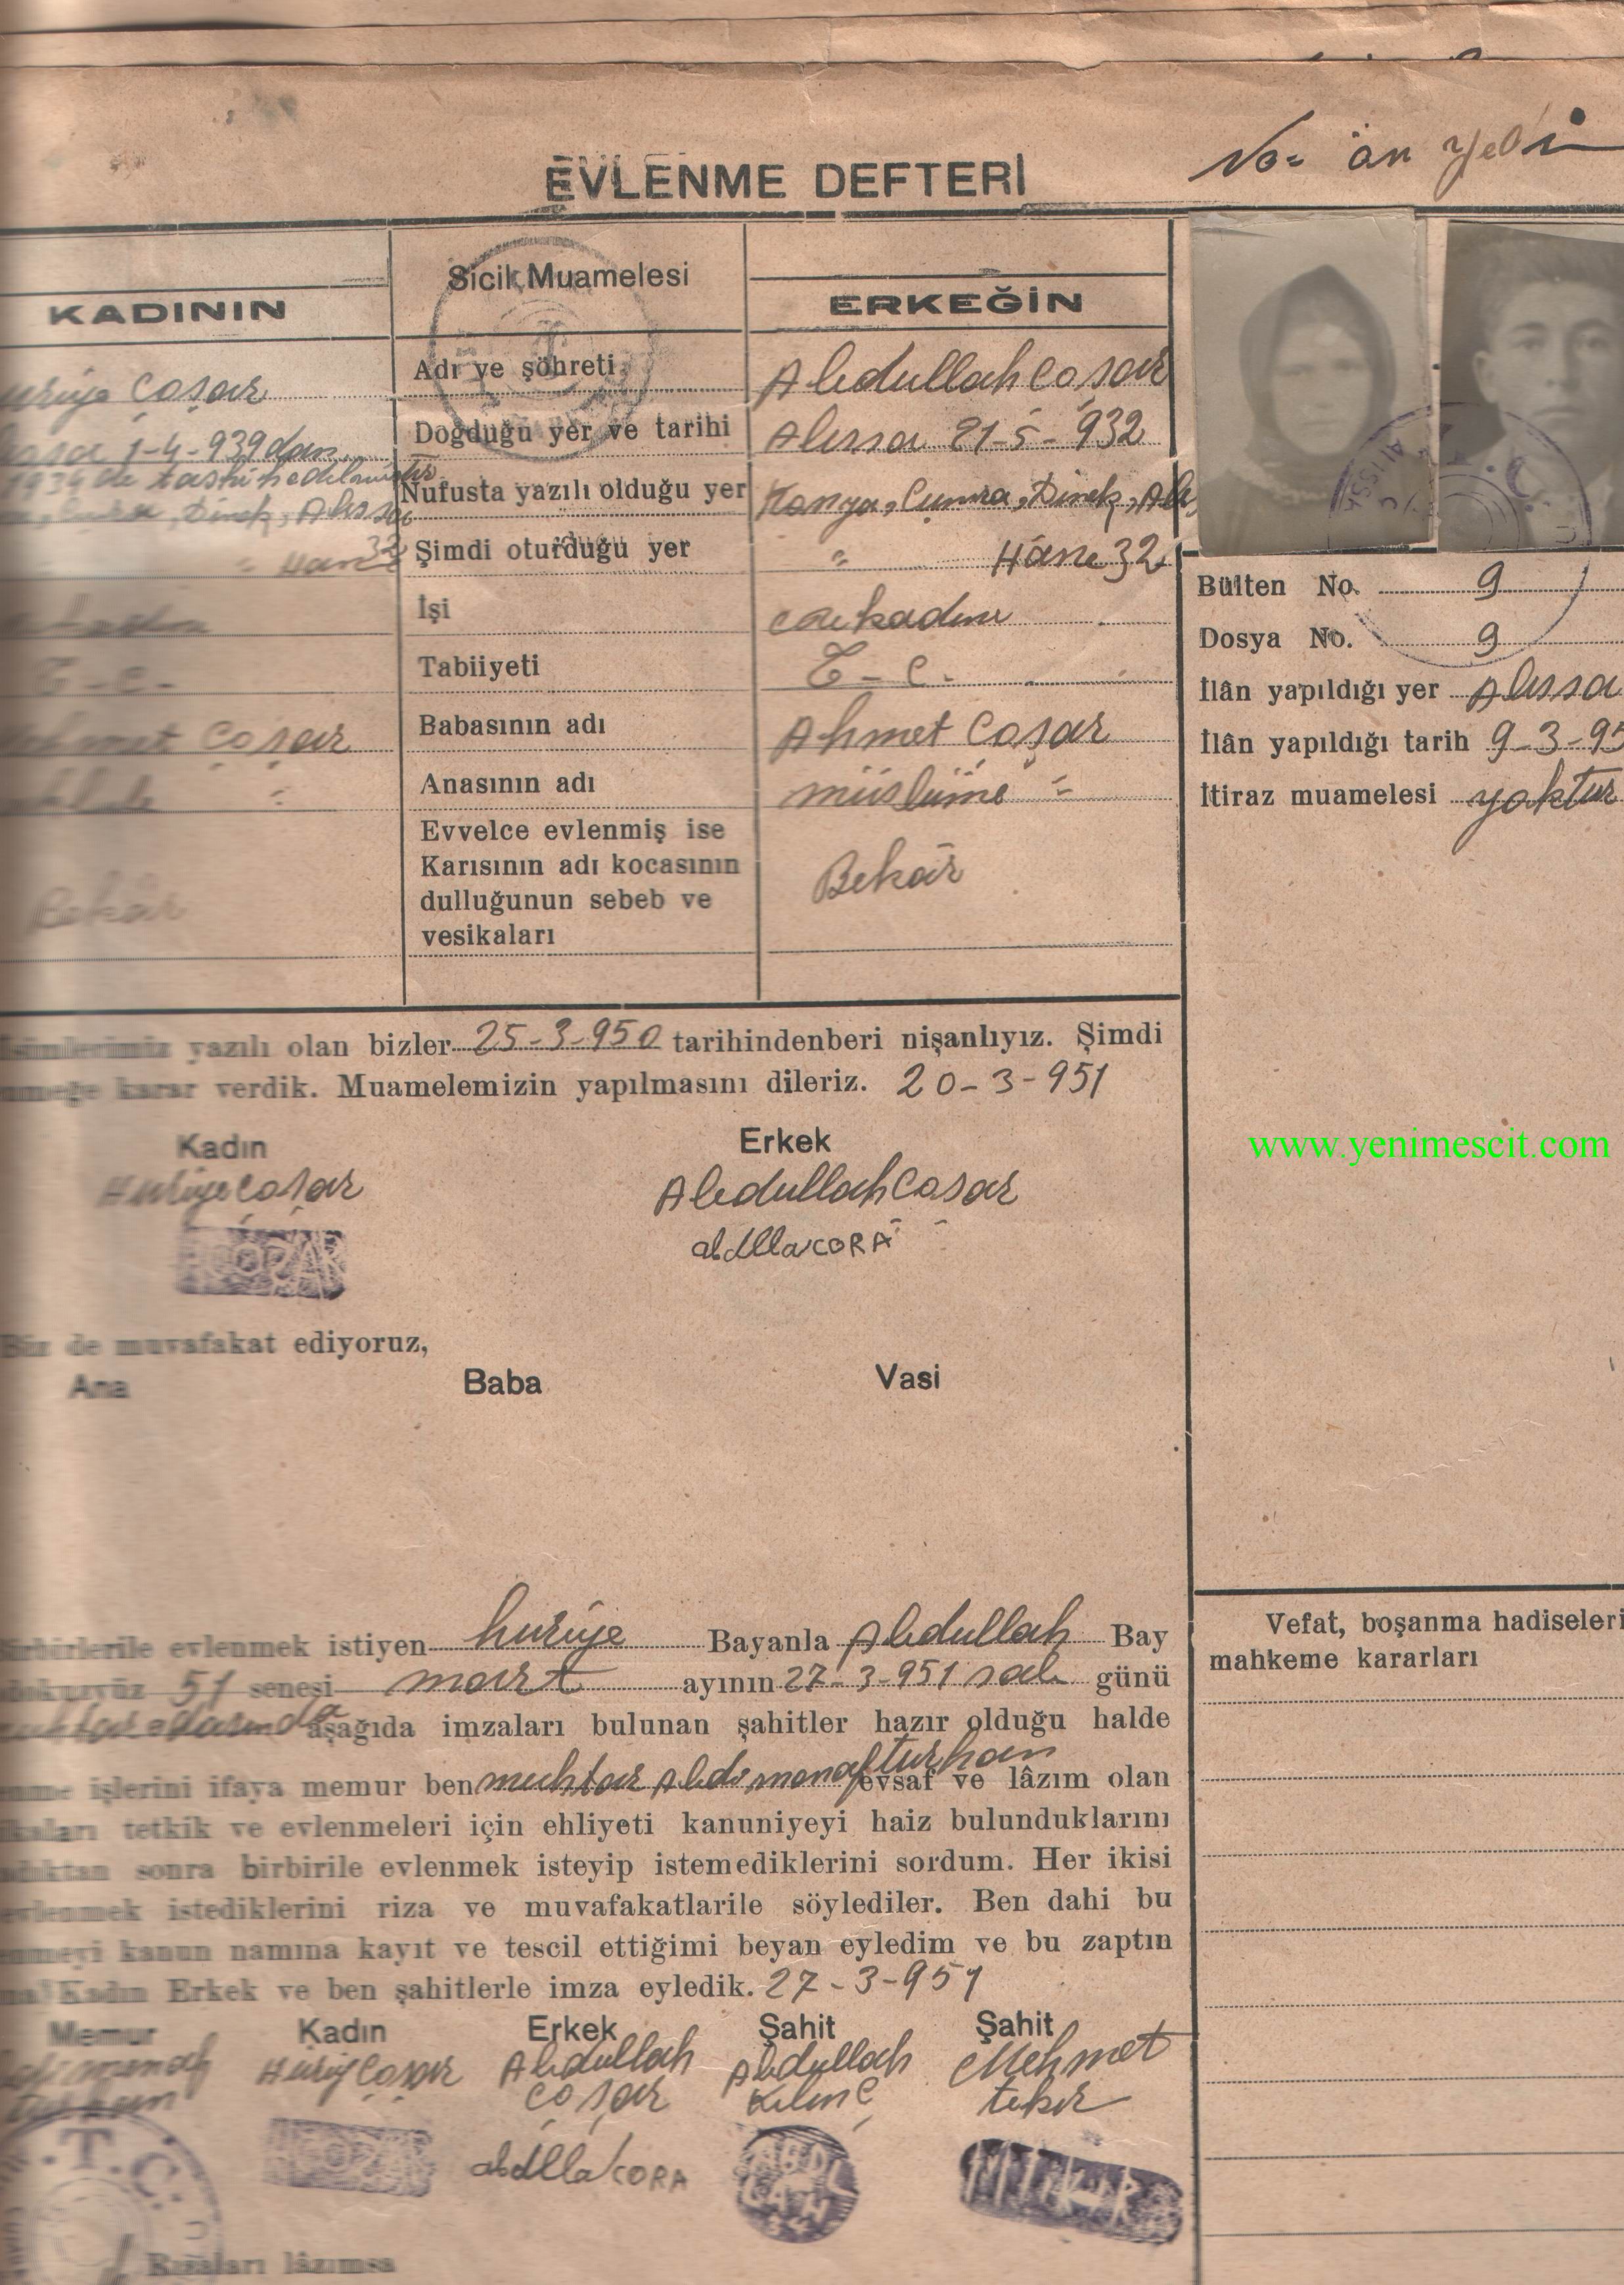 No= on yedi
EVLENME DEFTERİ
KADININ
Sicil Muamelesi
ERKEĞİN
uriye Coşar
Adı ve şöhreti
Abdullah Coşar
1-4-939 dan
Doğduğu yer ve tarihi
Alıssa 21-5-932
1934 de tashih edilmiştir
Dinek, Alıssa
Nüfusta yazılı olduğu yer
Konya, Çumra, Dinek, Alı
" Hane 32
Şimdi oturduğu yer
" Hane 32
İşi
evkadını
T-C-
Tabiiyeti
T-C-
Coşar
Babasının adı
Ahmet Coşar
Anasının adı
müslüme "
Bekâr
Evvelce evlenmiş ise
Karısının adı kocasının
dulluğunun sebeb ve
vesikaları
Bekâr
Bülten No. 9
Dosya No. 9
İlân yapıldığı yer Alıssa
İlân yapıldığı tarih 9-3-95
İtiraz muamelesi yoktur
isimlerimiz yazılı olan bizler 25-3-950 tarihindenberi nişanlıyız. Şimdi
nmeğe karar verdik. Muamelemizin yapılmasını dileriz. 20-3-951
Kadın
Erkek
Huriye Coşar
Abdullah Cosar
abdlla CORA
www.yenimescit.com
de muvafakat ediyoruz,
Ana
Baba
Vasi
birbirlerile evlenmek istiyen huriye Bayanla Abdullah Bay
dokuzyüz 51 senesi mart ayının 27-3-951 salı günü
muhtar odasında aşağıda imzaları bulunan şahitler hazır olduğu halde
nme işlerini ifaya memur ben muhtar Abdi monaf turhan evsaf ve lâzım olan
ikaları tetkik ve evlenmeleri için ehliyeti kanuniyeyi haiz bulunduklarını
adıktan sonra birbirile evlenmek isteyip istemediklerini sordum. Her ikisi
evlenmek istediklerini riza ve muvafakatlarile söylediler. Ben dahi bu
enmeyi kanun namına kayıt ve tescil ettiğimi beyan eyledim ve bu zaptın
Kadın Erkek ve ben şahitlerle imza eyledik. 27-3-951
Memur
Kadın
Erkek
Şahit
Şahit
Huriy Coşar
Abdullah
Coşar
Abdullah
Kılınç
Mehmet
tekir
abdlla CORA
ABDUL
LAH
T.C.
Rızaları lâzımsa
Vefat, boşanma hadiseleri
mahkeme kararları